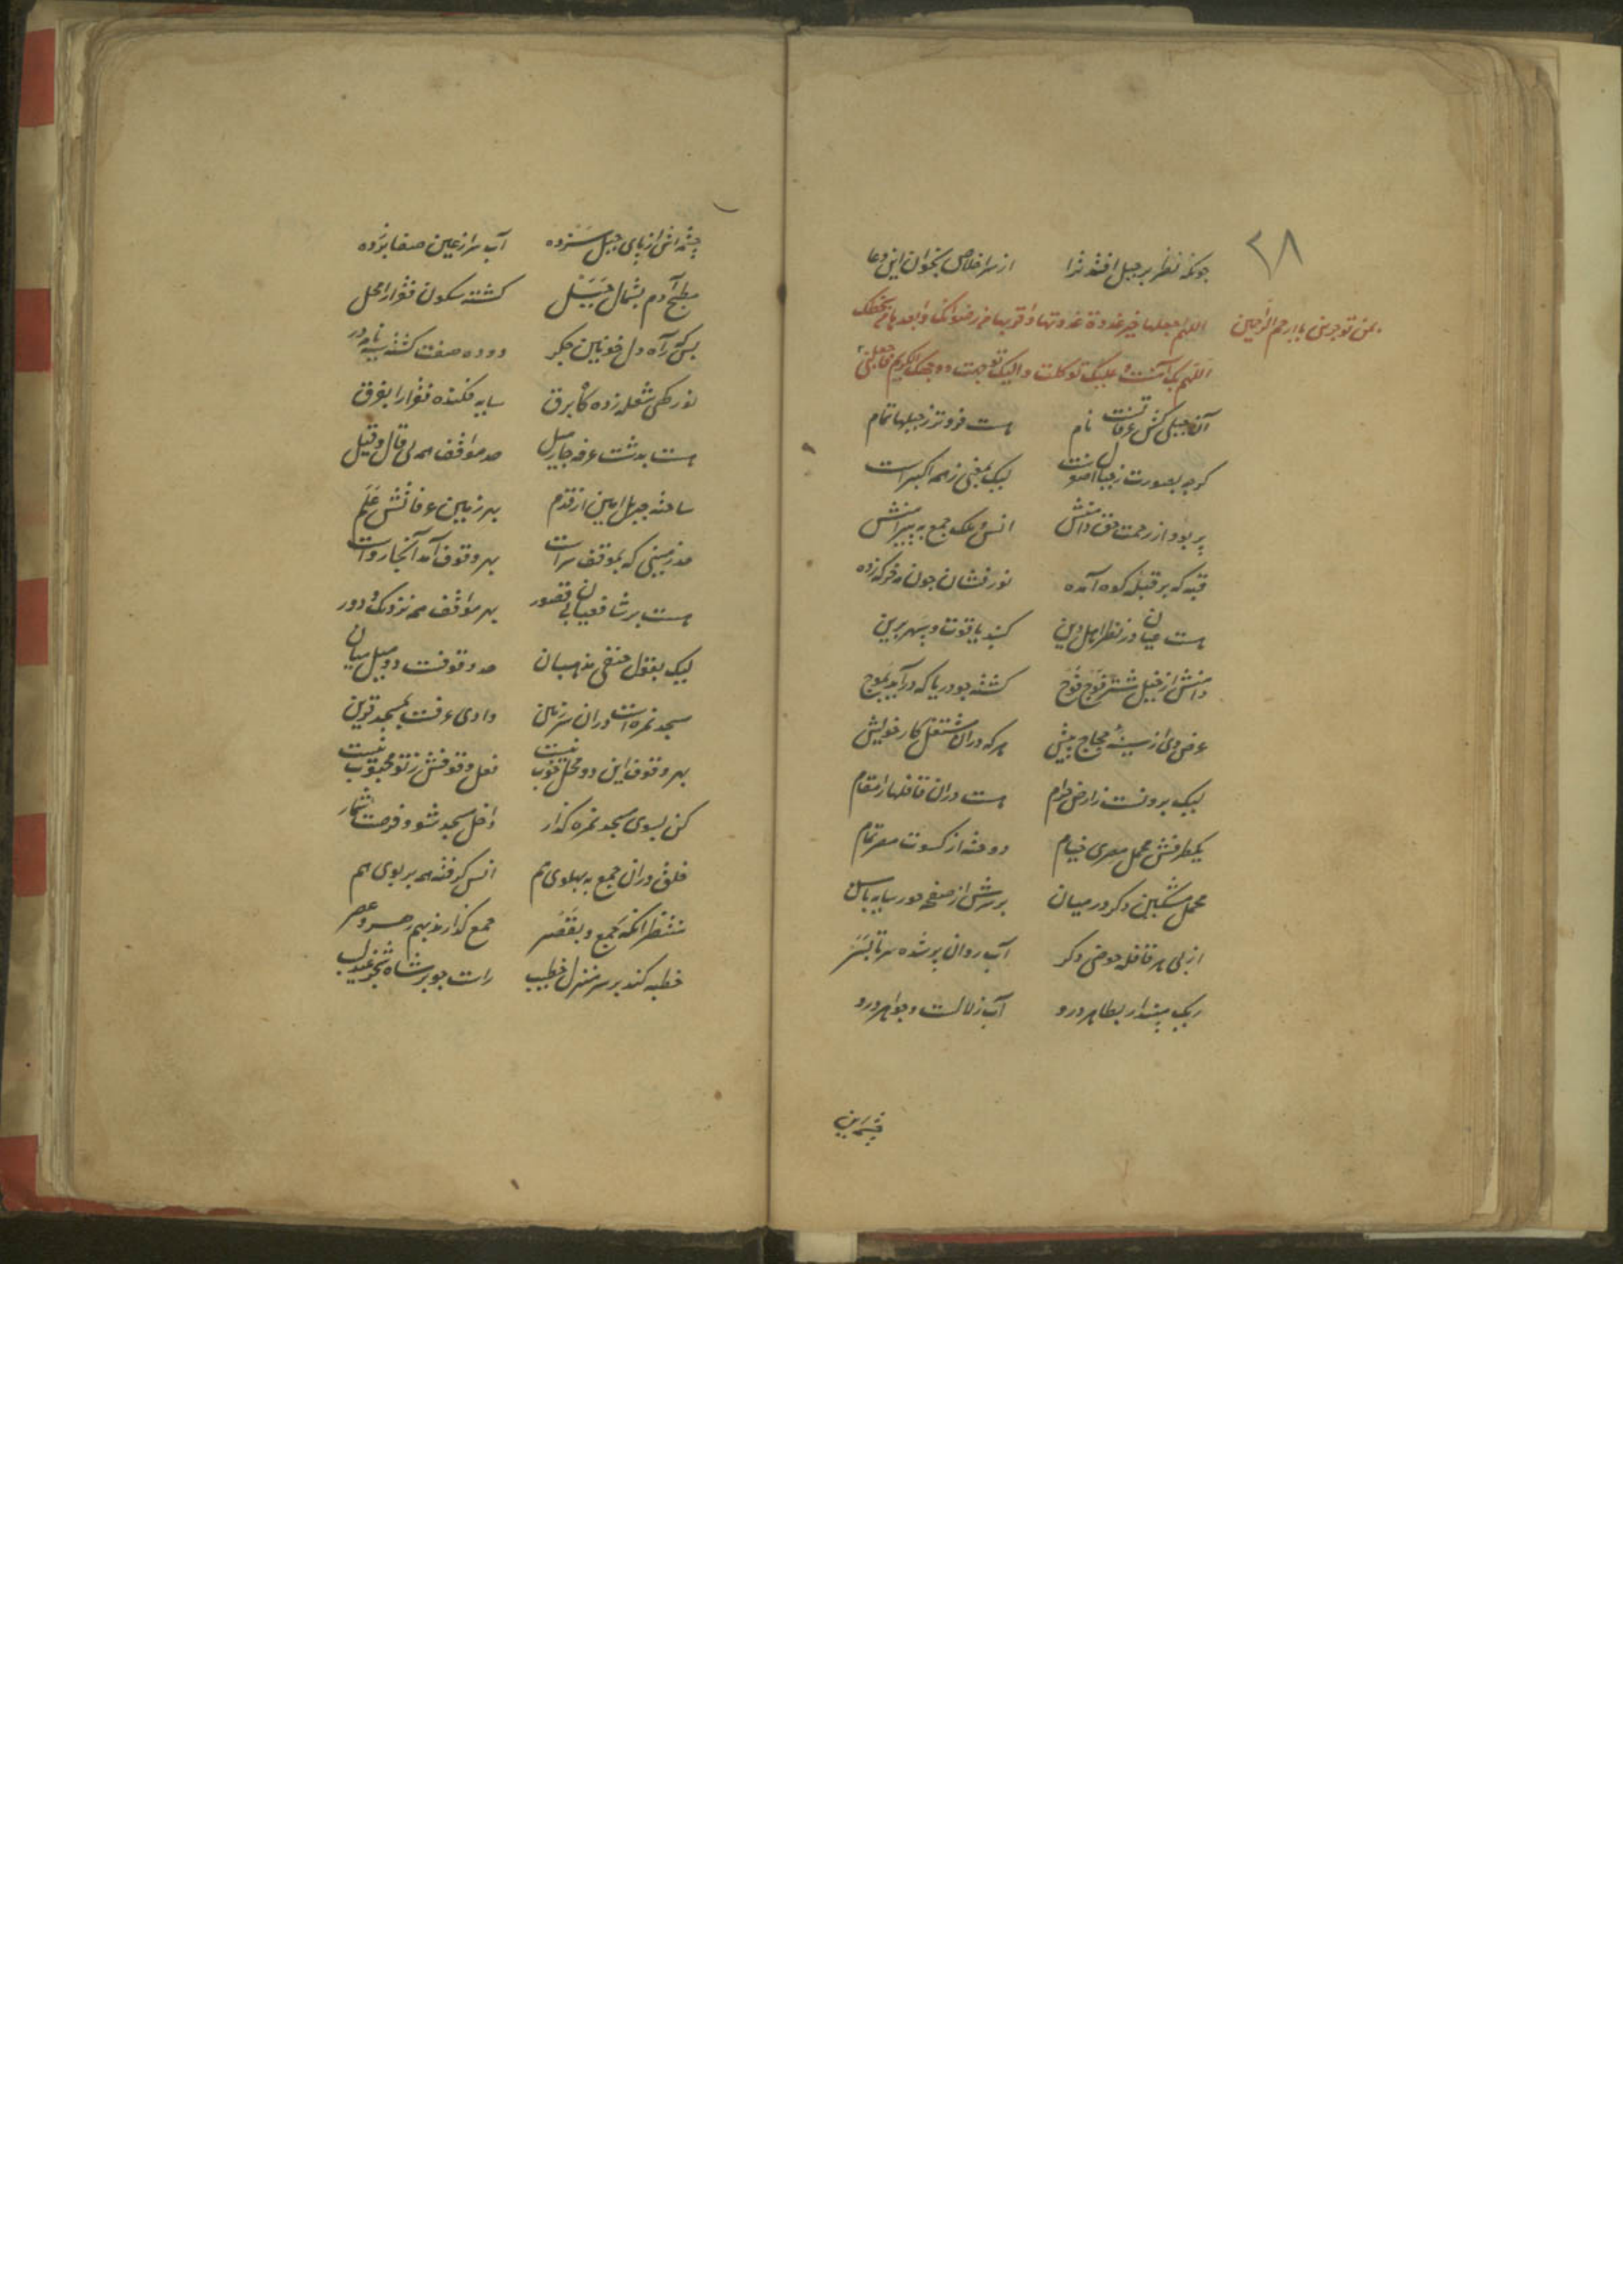 ۲۸
چونکه نظر بر جبل افتد ترا از سر اخلاص بخوان این دعا
اللهم اجعلها خیر غدوة غدوتها و اقربها من رضوانک و ابعدها من سخطک
اللهم بک آمنت و علیک توکلت و الیک توجهت و وجهک الکریم فاجعلنی
یا ارحم الراحمین
آن جبلی کش عرفاتست نام هست فروتر ز جبلها تمام
گرچه بصورت ز جبال اصغرست لیک بمعنی ز همه اکبرست
پر بود از رحمت حق دامنش انس و ملک جمع به پیرامنش
قبه که بر قبله کوه آمده نور فشان چون مه خرگه زده
هست عیان در نظر اهل دین گنبد یاقوت و سپهر برین
دامنش از خیل شتر فوج فوج گشته چو دریا که درآید بموج
عرض وی از سینه حجاج بیش هر که در آن مشتغل کار خویش
لیک برونست ز ارض حرام هست در آن قافلها را مقام
یکطرفش محمل مصری خیام دوخته از کسوت مصر تمام
محمل مشکین دگر در میان بر سرش از صفحه حور سایبان
از پی هر قافله حوضی دگر آب روان پر شده سر تا بسر
ریک مپندار بظاهر درو آب زلالست و جواهر درو
چشمه اش از پای جبل سر زده آب سر از عین صفا بر زده
مطبخ آدم بشمال جبل گشته سکون فقرا را محل
بسکه ز آه دل خونین جگر دوده صفت گشته سیه بام و در
نور گهی شعله زده گاه برق سایه فکنده فقرا را بفرق
هست بدشت عرفه چار میل حد مواقف همه بی قال و قیل
ساخته جبریل امین از قدم بهر زمین عرفاتش علم
حد زمینی که بموقف سراست بهر وقوف آمد آنجا رواست
هست بر شافعیان بی قصور بهر مواقف همه نزدیک و دور
لیک بقول حنفی مذهبان حد وقوفست دو میل میان
مسجد نمره است در آن سرزمین وادی عرفه است بمسجد قرین
بهر وقوف این دو محل خوب نیست فعل وقوفش ز تو محبوب نیست
کن بسوی مسجد نمره گذار داخل مسجد شو و فرصت شمار
خلق در آن جمع به پهلوی هم انس گرفته همه بر بوی هم
منتظر آنکه بجمع و بقصر جمع گذارند بهم ظهر و عصر
خطبه کند بر سر منزل خطیب راست چو بر شاخ شجر عندلیب